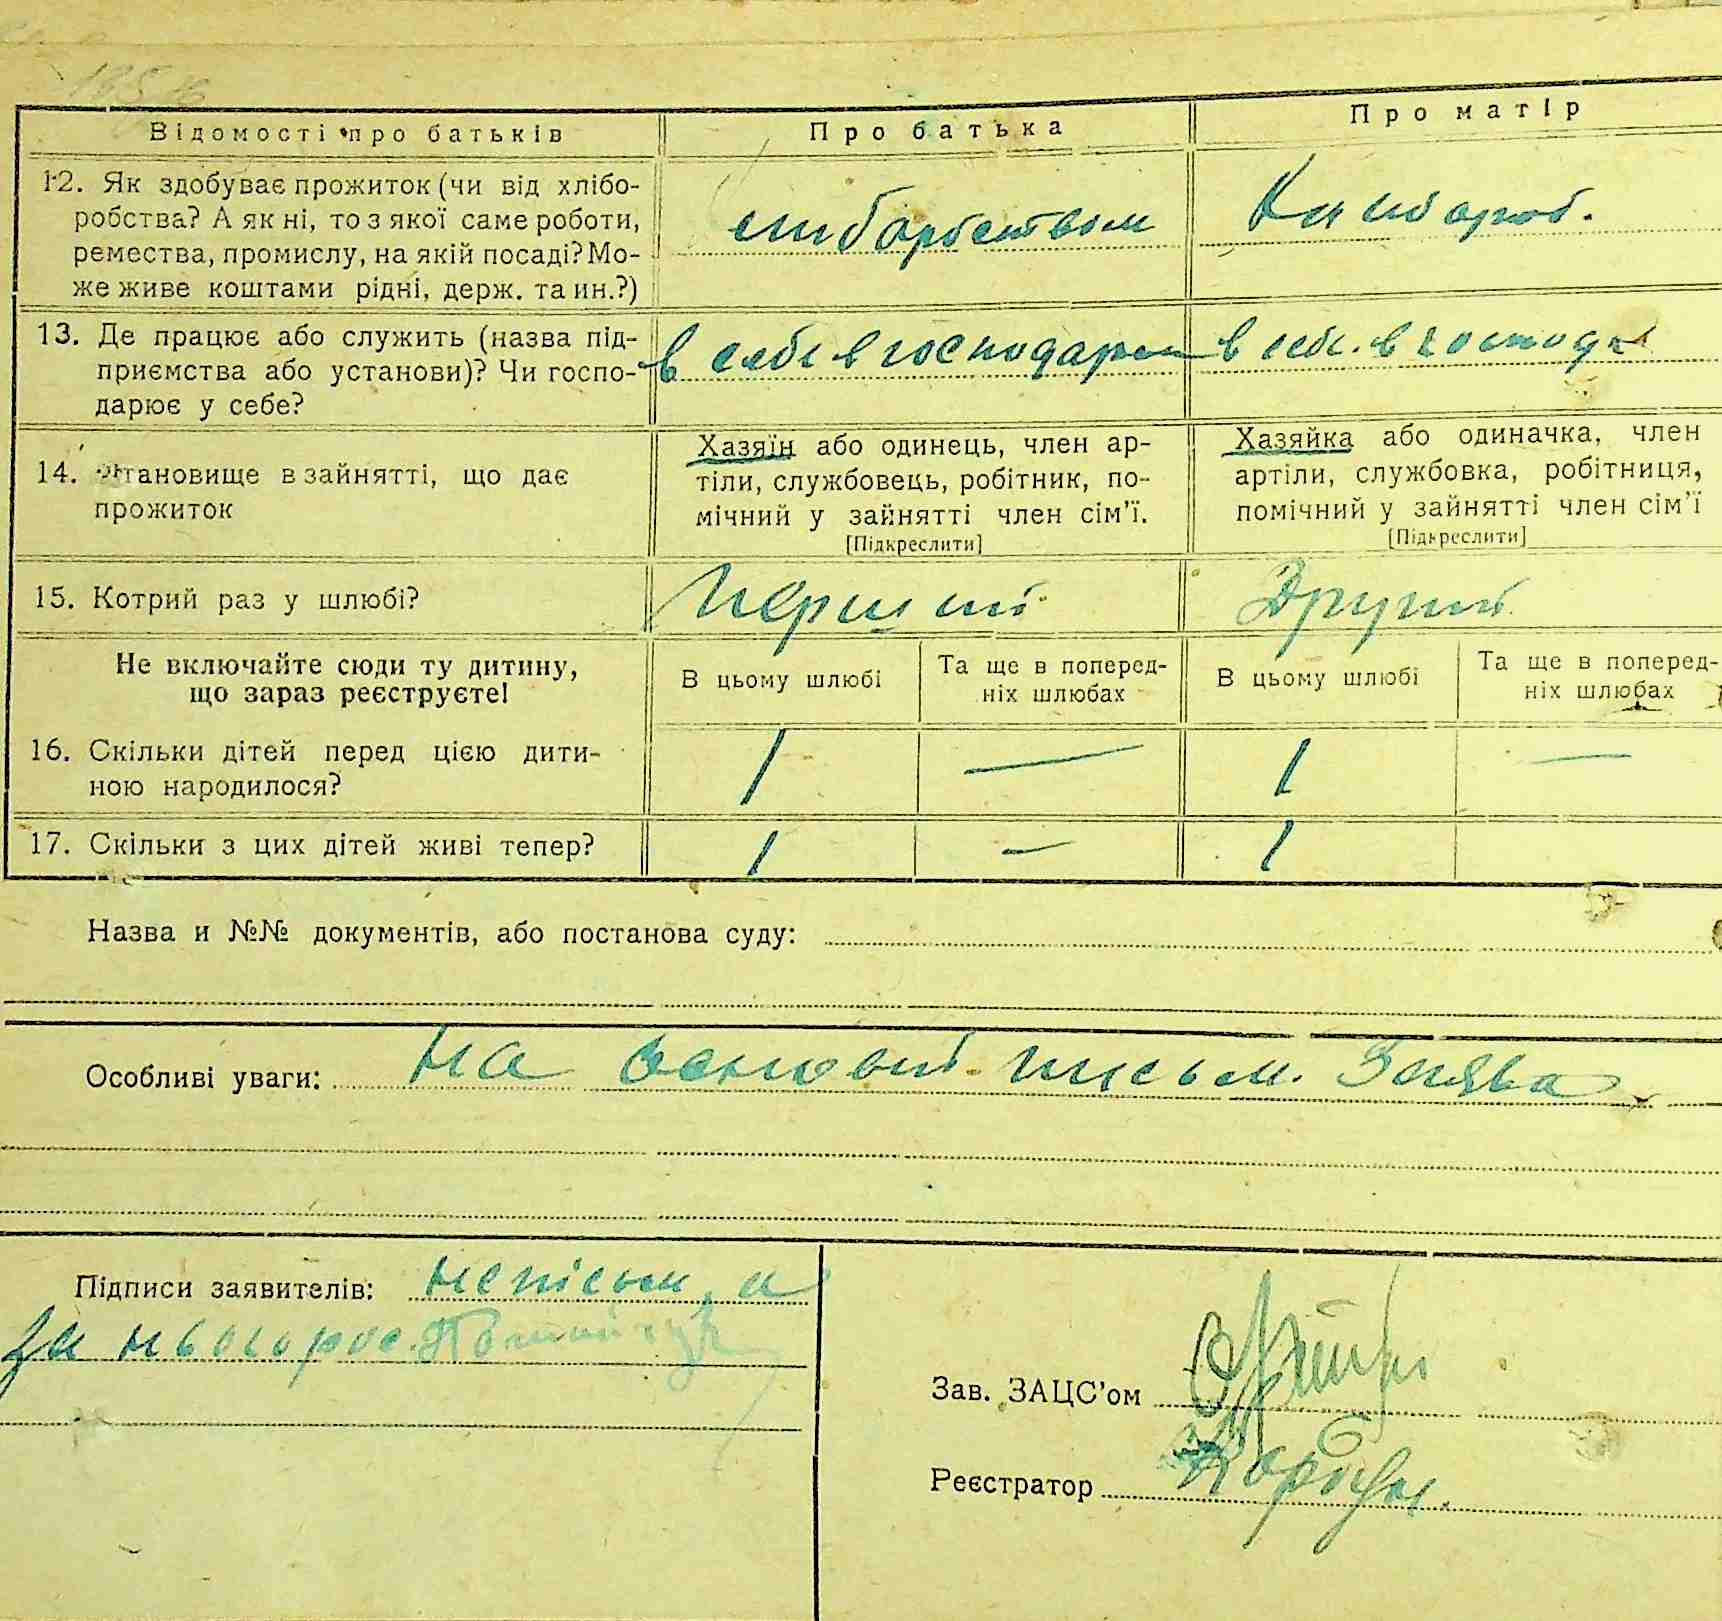 Відомості про батьків Про батька Про матір
12. Як здобуває прожиток (чи від хлібо-
робства? А як ні, то з якої саме роботи,
ремества, промислу, на якій посаді? Мо-
же живе коштами рідні, держ. та ин.?)
13. Де працює або служить (назва під-
приємства або установи)? Чи госпо-
дарює у себе?
в себе в господар в себе в господа
14. Становище в зайнятті, що дає
прожиток
Хазяїн або одинець, член ар-
тіли, службовець, робітник, по-
мічний у зайнятті член сім'ї.
[Підкреслити]
Хазяйка або одиначка, член
артіли, службовка, робітниця,
помічний у зайнятті член сім'ї
[Підкреслити]
15. Котрий раз у шлюбі? Перший Другий
Не включайте сюди ту дитину,
що зараз реєструєте!
В цьому шлюбі
Та ще в поперед-
ніх шлюбах
В цьому шлюбі
Та ще в поперед-
ніх шлюбах
16. Скільки дітей перед цією дити-
ною народилося?
1 — 1 —
17. Скільки з цих дітей живі тепер? 1 — 1
Назва и №№ документів, або постанова суду:
Особливі уваги: На основі письм. Заява
Підписи заявителів: непісьм, а
за нього рос.
Зав. ЗАЦС'ом
Реєстратор